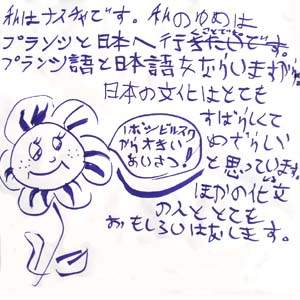 私はナスチャです。私のゆめは
フランツと日本へ行くことです。
フランツ語と日本語をならいますから
日本の文化はとても
すばらしくて
めずらしい
と思っています。
ほかの化文
の人ととても
おもしろいはあします。
ノボシビルスク
から大きい
あいさつ!